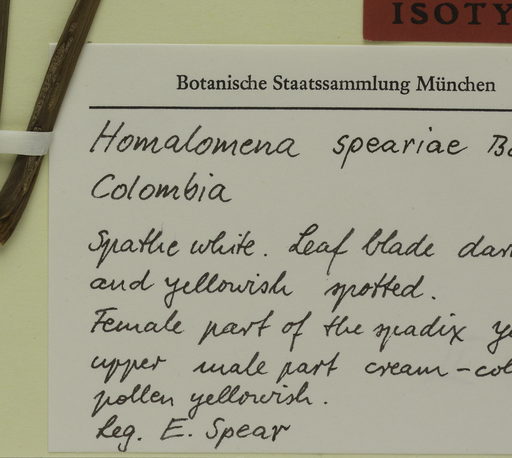 ISOTY
Botanische Staatssammlung München
Homalomena speariae Bo
Colombia
Spathe white. Leaf blade dar
and yellowish spotted.
Female part of the spadix ye
upper male part cream-col
pollen yellowish.
Leg. E. Spear